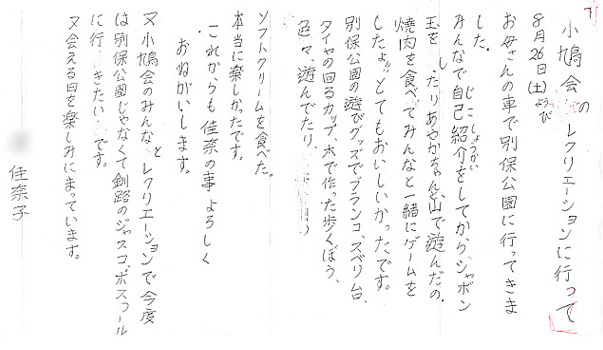 小鳩会のレクリエーションに行って
8月26日(土)ようび
お母さんの車で別保公園に行ってきま
した。
みんなで自己紹介をしてからシャボン
じこしょうかい
玉をしたりあやかちゃんと山で遊んだの。
焼肉を食べてみんなと一緒にゲームを
したよ!!とてもおいしいかったです。
別保公園の遊びグッズでブランコ、スベリ台、
タイヤの回るカップ、木で作った歩くぼう、
色々、遊んでたり、
ソフトクリームを食べた。
本当に楽しかたです。
これからも佳奈の事よろしく
おねがいします。
又小鳩会のみんなとレクリエーションで今度
は別保公園じゃなくて釧路のジャスコ、ボスフール
に行きたいです。
又会える日を楽しみにまっています。
佳奈子